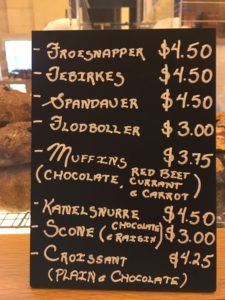 - FROESNAPPER $4.50
- TEBIRKES $4.50
- SPANDAUER $4.50
- FLODBOLLER $3.00
- MUFFINS $3.75
(CHOCOLATE, RED BEET, CURRANT & CARROT)
- KANELSNURRE $4.50
- SCONE (CHOCOLATE & RAISIN) $3.00
- CROISSANT $4.25
(PLAIN & CHOCOLATE)